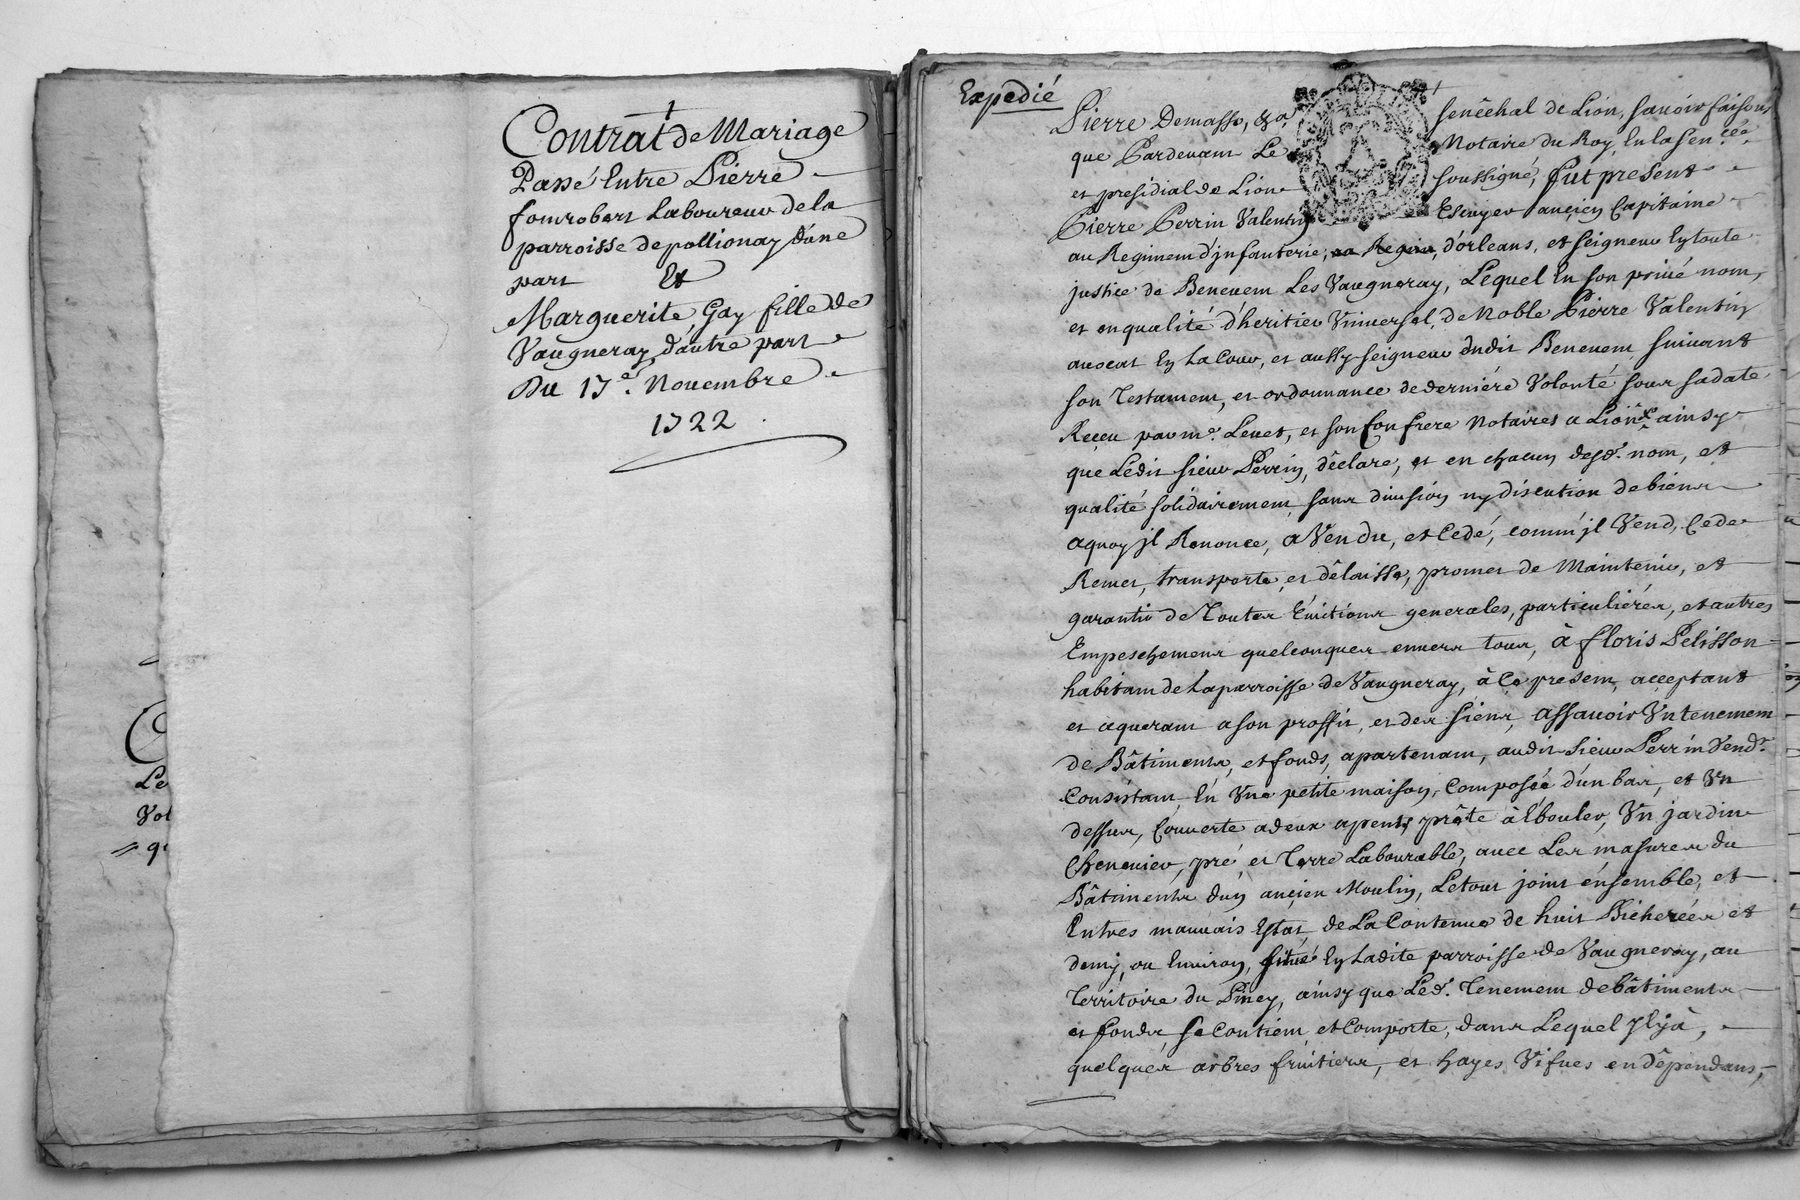 Contrat de Mariage
Passé Entre Pierre
fourobert Laboureur de la
parroisse de pollionay d'une
part Et
Marguerite Gay fille de
Vaugneray d'autre part
Du 17e. Novembre
1722
Le
Vol
Expedié
Pierre Demasso, &a. senêchal de Lion, savoir faisons
que Pardevant Le Notaire du Roy, En la Sen.cée
et presidial de Lion soussigné, fut present
Pierre Perrin Valentin Escuyer ancien Capitaine
au Regiment d'jnfanterie, d'orleans, et seigneur En toute
justice de Benevent Les Vaugneray, Lequel En son privé nom,
et en qualité d'heritier Vniversel, de Noble Pierre Valentin
avocat En La Cour, et aussy seigneur dudit Benevent suivant
son Testament, et ordonnance de derniére Volonté sous sa date
Receu par me. Levet, et son Confrere Notaires a Lion ainsy
que Lédit sieur Perrin, dêclare, et en chacun desd. nom, et
qualité solidairement, sans division ny discution de biens
aquoy jl Renonce, a Vendu, et Cedé, comm'jl Vend, Cede
Remet, transporte, et dêlaisse, promet de Maintenir, et
garantir de Toutes Evictions generales, particuliéres, et autres
Empeschemens quelconques envers tous, à floris Pelisson
habitant de La parroisse de Vaugneray, à Ce present, acceptant
et aquerant a son proffit, et des siens, assavoir Vn tenement
de Bâtiments, et fonds, apartenant, audit sieur Perrin Vendr.
Consistant, En Vne petite maison, Composée d'un bas, et Vn
dessus, Couverte a deux apents prête à Ebouler, Vn jardin
Chenevier, pré, et Terre Labourable, avec Les masures du
Bâtiments d'un ancien Moulin, Le tout joint énsemble, et
En tres mauvais Estat, de La Contenue de huit Bicherées et
demy, ou Environ, situé En Ladite parroisse de Vaugneray, au
Territoire du Piney, ainsy que Léd. Tenement de bâtiments
et fonds, se Contient, et Comporte, dans Lequel Jl y à,
quelques arbres fruitiers, et hayes Vifves en dêpendans,